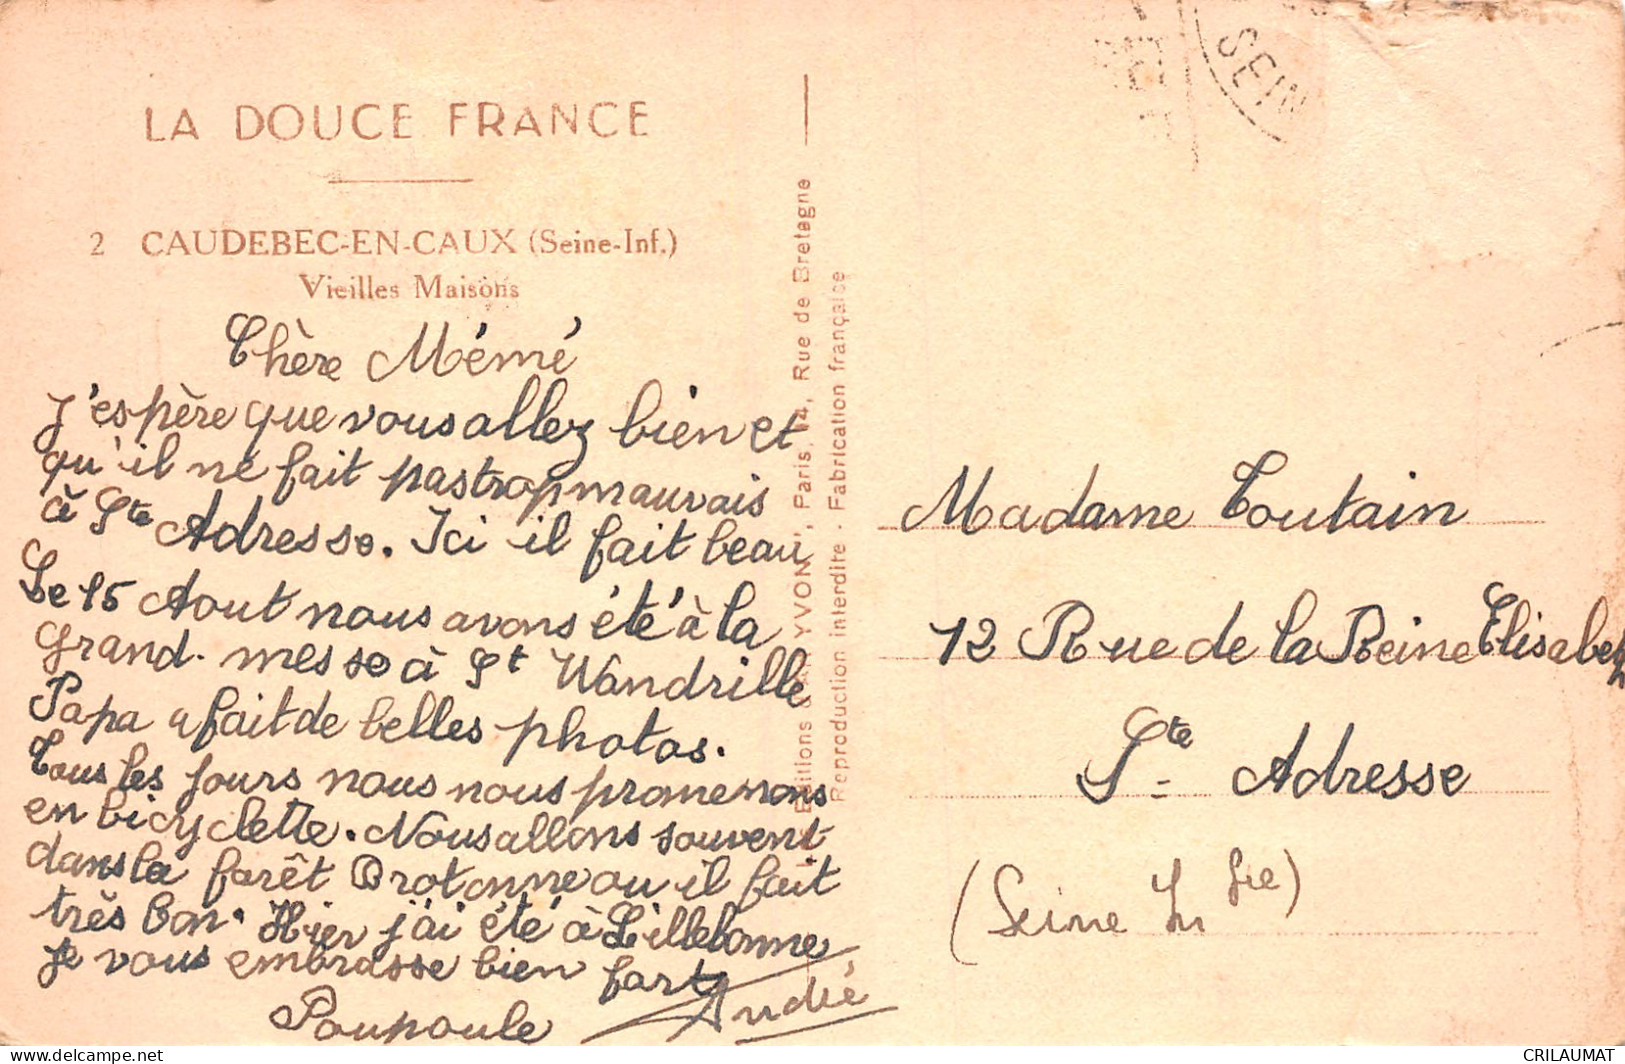 LA DOUCE FRANCE
2 CAUDEBEC-EN-CAUX (Seine-Inf.)
Vieilles Maisons
Chère Mémé
J'espère que vous allez bien et
qu'il ne fait pas trop mauvais
à Ste Adresse. Ici il fait beau
Le 15 Aout nous avons été à la
grand-messe à St Wandrille
Papa a fait de belles photos.
Tous les jours nous nous promenons
en bicyclette. Nous allons souvent
dans la forêt Brotonne ou il fait
très bon. Hier j'ai été à Lillebonne
Je vous embrasse bien fort
Poupoule André
Editions YVON, Paris, 14, Rue de Bretagne
Reproduction interdite - Fabrication française
SEIN
Madame Toutain
12 Rue de la Reine Elisabeth
Ste Adresse
(Seine Infre)
delcampe.net
CRILAUMAT